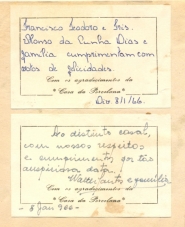 Francisco Teodoro e Iris.
Afonso da Cunha Dias e
família cumprimentam com
votos de felicidades.
Com os agradecimentos da
"Casa da Porcelana"
Div. 8/1/66.
Ao distinto casal,
com nossos respeitos
e cumprimentos por tão
auspiciosa data.
e família
Com os agradecimentos da
"Casa da Porcelana"
- 8 Jan 966 -